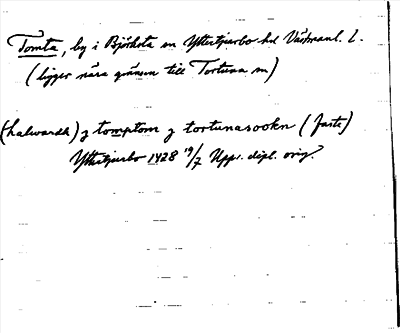 Tomta, by i Björksta sn Yttertjurbo hd Västmanl. l.
(ligger nära gränsen till Tortuna sn)
(halwardh) j tomptom j tortunasookn (faste)
Yttertjurbo 1428 19/7 Upps. dipl. orig.